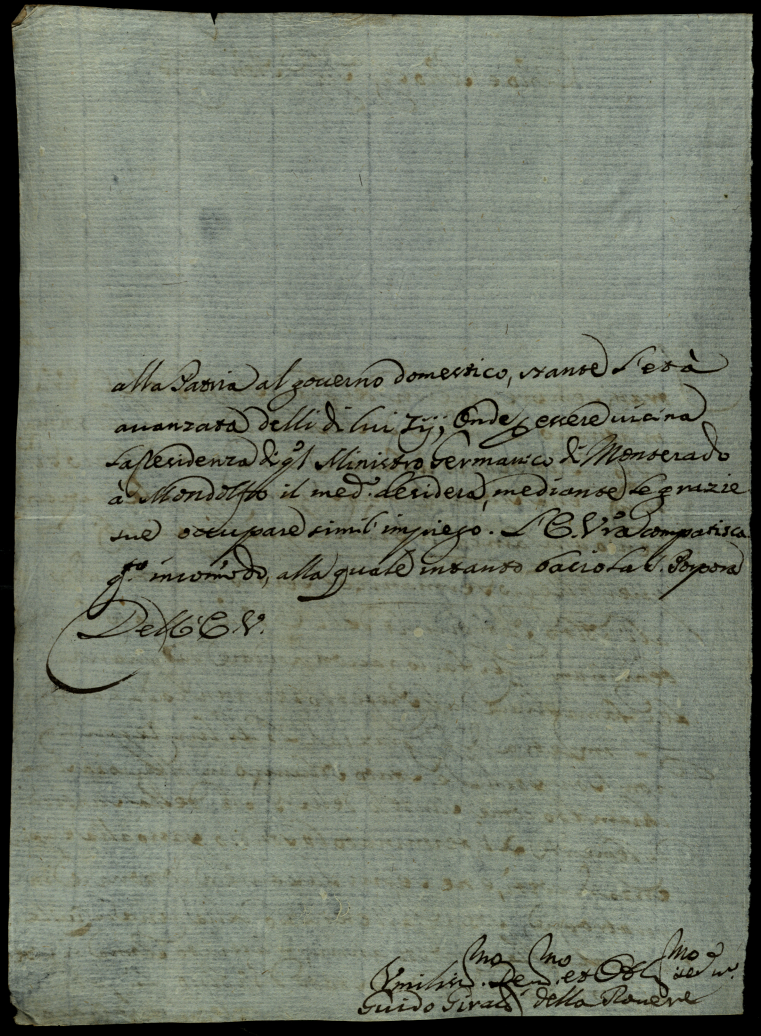 alla Patria al governo domestico, stante l'età
avanzata delli di lui Zij; Onde p essere vicina
la residenza di q.l Ministro Germanico di Monterado
à Mondolfo il med.o desidera, mediante le grazie
sue occupare simil' impiego. L'E. V.ra compatisca
q.to incõmodo, alla quale intanto bacio la S. Porpora
Dell'E. V.
Umiliss.mo Dev.mo et Obl.mo Ser.
Guido Girald della Rovere